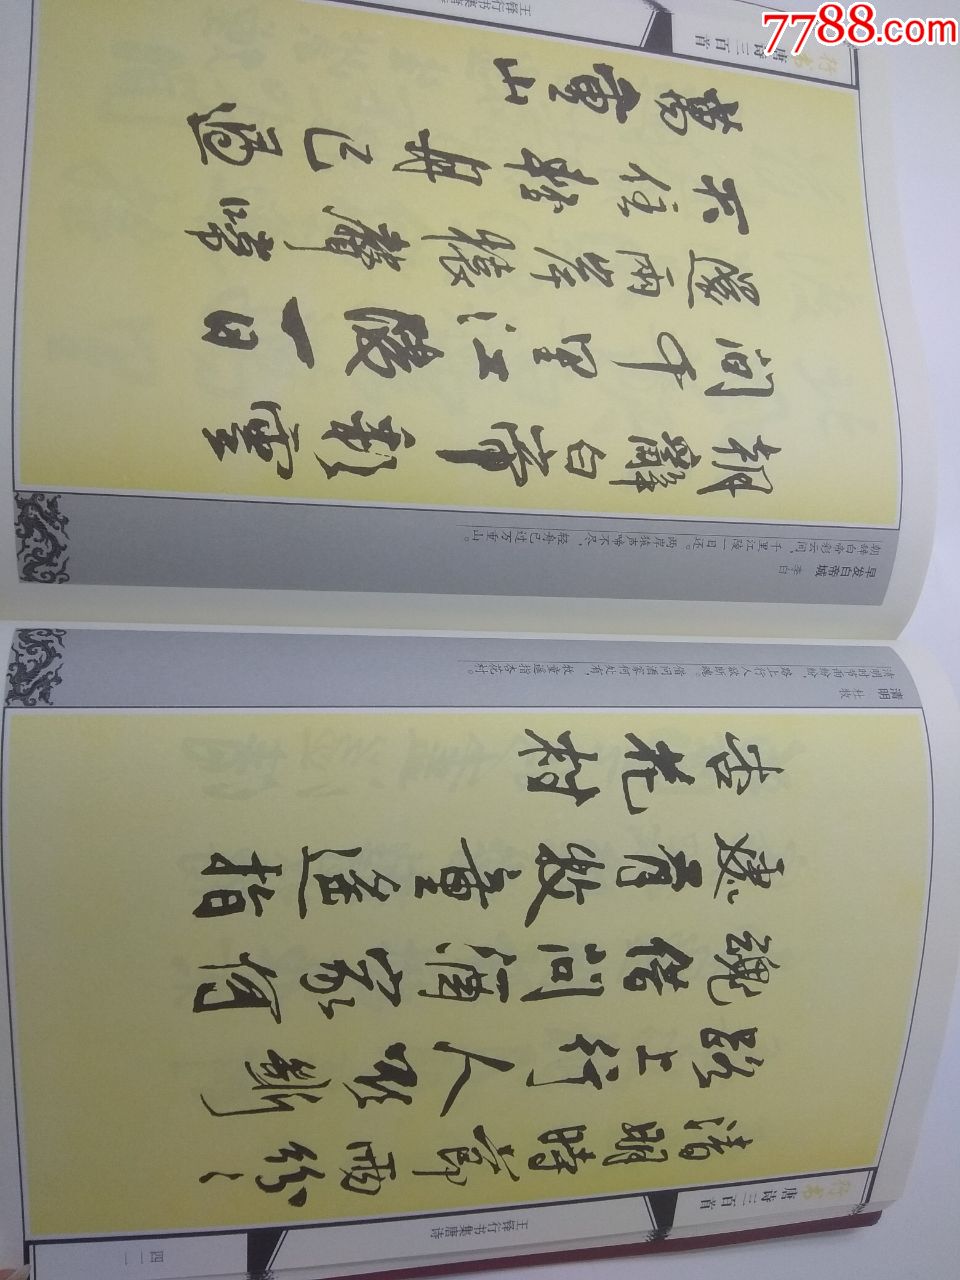 行书
唐诗三百首
王铎行书集唐诗
清明時節雨紛〻
路上行人欲斷
魂借問酒家何
處有牧童遙指
杏花村
清明 杜牧
清明时节雨纷纷,
路上行人欲断魂。
借问酒家何处有,
牧童遥指杏花村。
朝辭白帝彩雲
間千里江陵一日
還兩岸猿聲啼
不住輕舟已過
萬重山
早发白帝城 李白
朝辞白帝彩云间,
千里江陵一日还。
两岸猿声啼不尽,
轻舟已过万重山。
行书
唐诗三百首
王铎行书集唐诗
7788.com